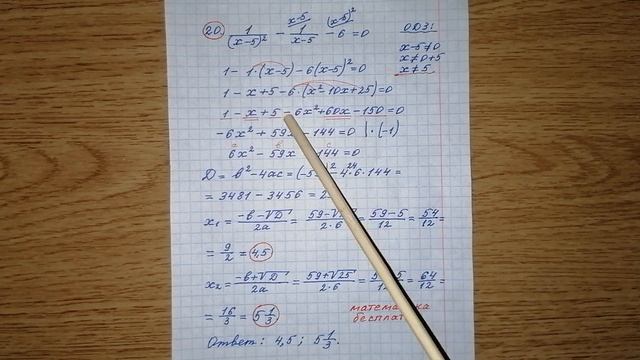 20. 1/(x-5)² - 1/(x-5) - 6 = 0
x-5
(x-5)²
ОДЗ:
x-5≠0
x≠0+5
x≠5
1 - 1·(x-5) - 6(x-5)² = 0
1 - x + 5 - 6·(x² - 10x + 25) = 0
1 - x + 5 - 6x² + 60x - 150 = 0
-6x² + 59x - 144 = 0 |·(-1)
a в c
6x² - 59x 144 = 0
D = в² - 4ac = (-5 )² - 4·6·144 =
24
= 3481 - 3456 = 2
x₁ = (-в-√D)/2a = (59-√25)/(2·6) = (59-5)/12 = 54/12 =
= 9/2 = 4,5
x₂ = (-в+√D)/2a = (59+√25)/(2·6) = 5 5/1 = 64/12 =
= 16/3 = 5 1/3
математика
бесплат
Ответ: 4,5; 5 1/3.